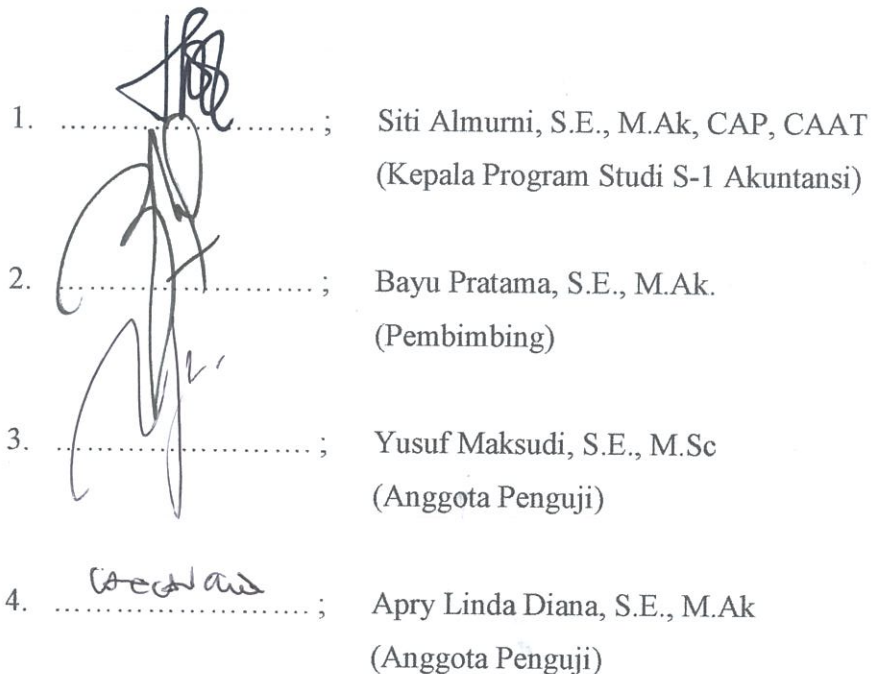 1. ........................ ; Siti Almurni, S.E., M.Ak, CAP, CAAT
(Kepala Program Studi S-1 Akuntansi)
2. ........................ ; Bayu Pratama, S.E., M.Ak.
(Pembimbing)
3. ........................ ; Yusuf Maksudi, S.E., M.Sc
(Anggota Penguji)
4. ........................ ; Apry Linda Diana, S.E., M.Ak
(Anggota Penguji)